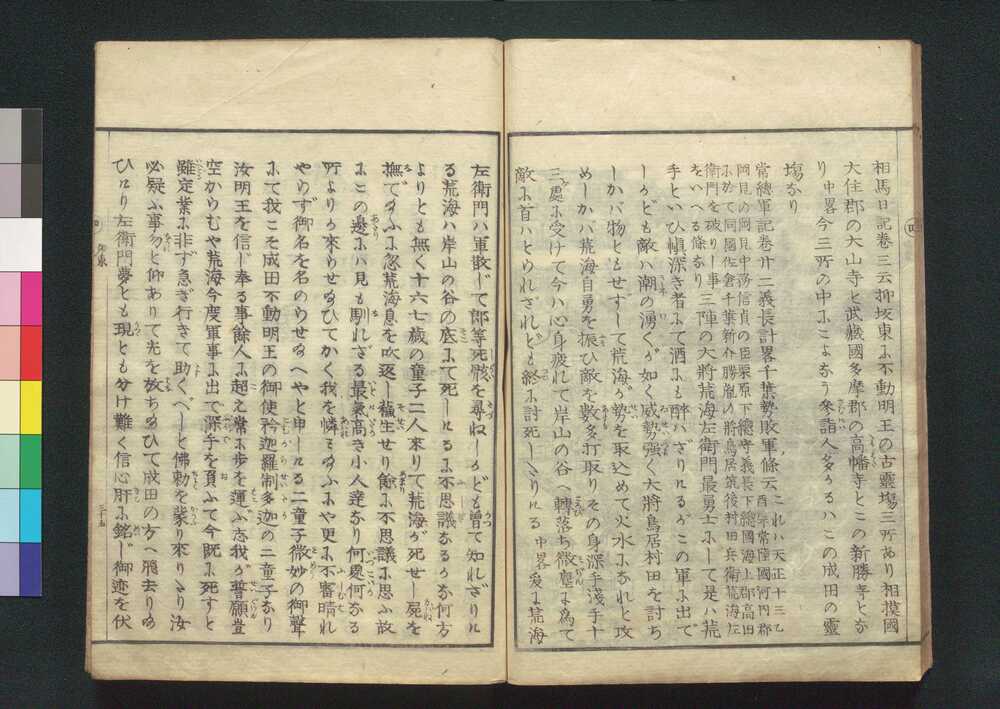 相馬日記卷三云抑坂東に不動明王の古靈塲三所あり相摸國
大住郡の大山寺と武藏國多摩郡の高幡寺とこの新勝寺とな
り中畧今三所の中にこよなう參詣人多かるハこの成田の靈
塲なり
常總軍記卷廿二義長計畧千葉勢敗軍條云
これハ天正十三乙
酉年常陸國河内郡
岡見の岡見中務信貞の臣栗原下總守義長下總國海上郡高田
に於て同國佐倉千葉新介勝胤の將鳥居筑後村田兵衛荒海左
衛門を破りし事
をいへる條なり
三陣の大將荒海左衛門最勇士にして是ハ荒
手といひ愼深き者にて酒にも醉ハざりけるがこの軍に出で
しかども敵ハ潮の湧くが如く威勢強く大將鳥居村田を討ち
しかバ物ともせずして荒海が勢を取込めて火水になれと攻
めしかバ荒海自勇を振ひ敵を數多打取りその身深手淺手十
三處に受けて今ハ心身疲れて岸山の谷へ轉落ち微塵に爲て
敵に首ハとられざれども終に討死したりける中畧爰に荒海
左衛門ハ軍散じて郎等死骸を尋ねしかども曾て知れざりけ
る荒海ハ岸山の谷の底にて死しけるに不思議なるかな何方
よりとも無く十六七歳の童子二人來りて荒海が死せし屍を
撫て給ふに忽荒海息を吹返し蘓生せり餘に不思議に思ふ故
にこの邊にハ見も馴れざる最氣高き小人達なり何處何なる
所より來らせ給ひてかく我を憐ミ給ふにや更に不審晴れ
やらず御名を名のらせ給へやと申しける二童子微妙の御聲
にて我こそ成田不動明王の御使矜迦羅制多迦の二童子なり
汝明王を信じ奉る事餘人に超之常に歩を運ぶ志我が誓願豈
空からむや荒海今度軍事に出で深手を負ふて今既に死すと
雖定業に非ず急ぎ行きて助くべしと佛勅を蒙り來りたり汝
必疑ふ事勿と仰ありて光を放ち給ひて成田の方へ飛去り給
ひけり左衛門夢とも現とも分け難く信心肝に銘じ御迹を伏